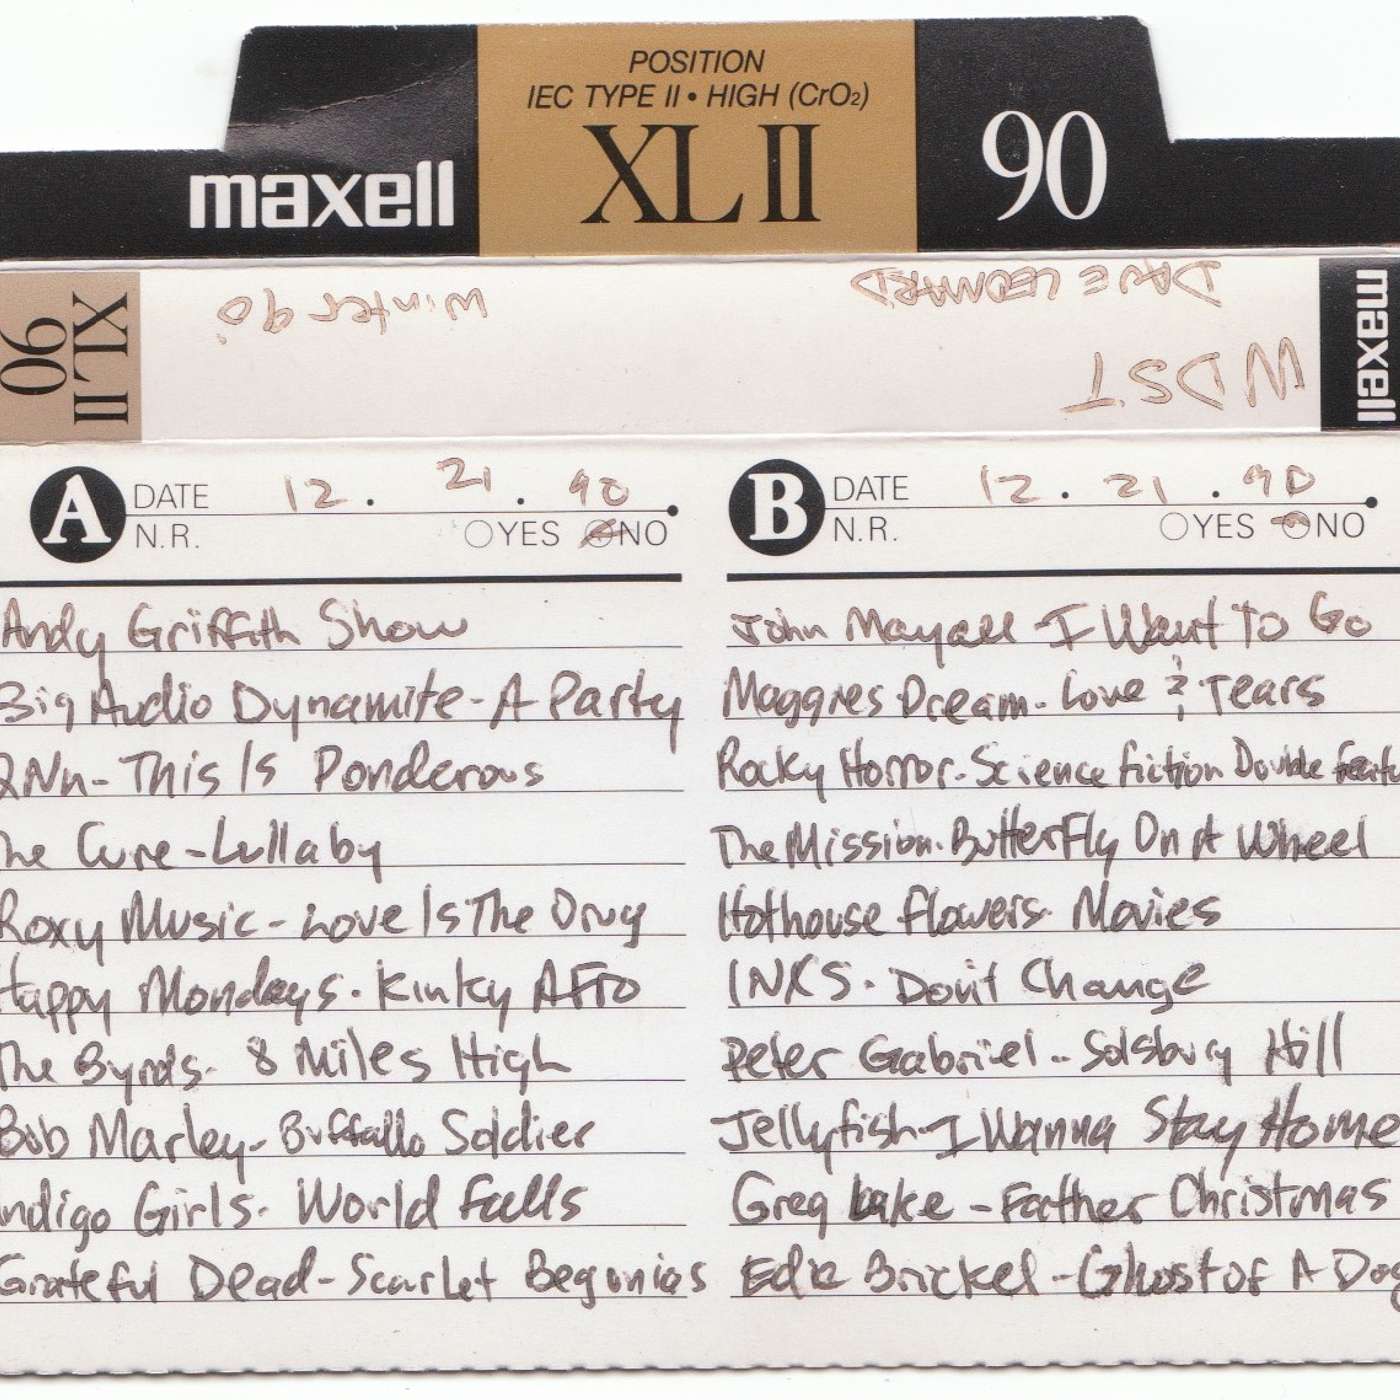 POSITION
IEC TYPE II • HIGH (CrO2)
maxell XLII 90
XLII 90
Winter 90
DAVE LEONARD
WDST
maxell
A DATE 12. 21. 90
N.R. YES NO
Andy Griffith Show
Big Audio Dynamite-A Party
2NU-This Is Ponderous
The Cure-Lullaby
Roxy Music-Love Is The Drug
Happy Mondays. Kinky Afro
The Byrds. 8 Miles High
Bob Marley-Buffallo Soldier
Indigo Girls. World Falls
Grateful Dead-Scarlet Begonias
B DATE 12. 21. 90
N.R. YES NO
John Mayall-I Want To Go
Maggies Dream-Love & Tears
Rocky Horror-Science Fiction Double Featu
The Mission. Butterfly On A Wheel
Hothouse Flowers. Movies
INXS. Don't Change
Peter Gabriel-Solsbury Hill
Jellyfish-I Wanna Stay Home
Greg Lake-Father Christmas
Edie Brickel-Ghost of A Dog